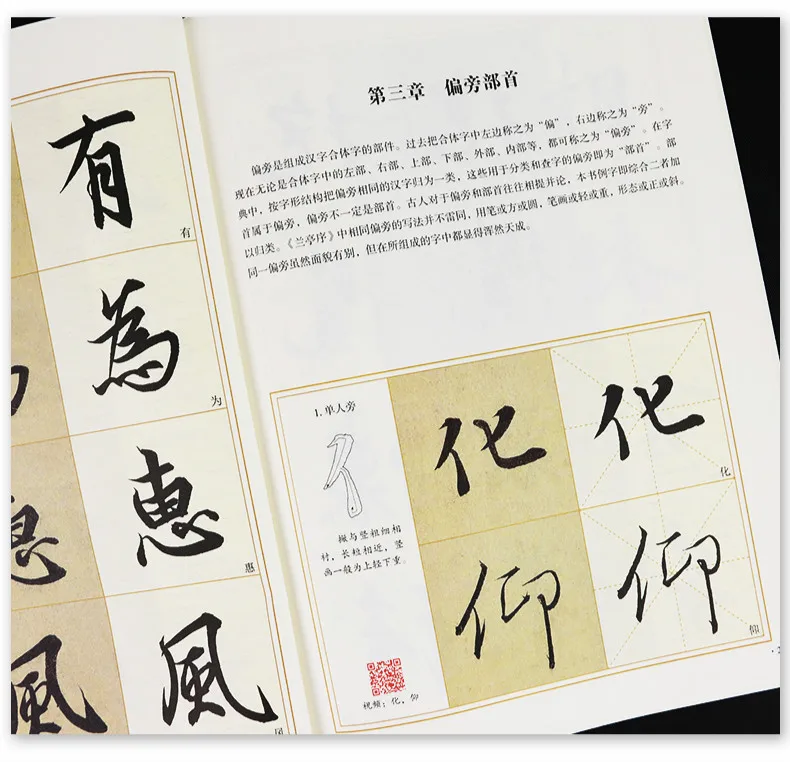 有
有
為
为
惠
惠
風
风
第三章 偏旁部首
偏旁是组成汉字合体字的部件。过去把合体字中左边称之为“偏”，右边称之为“旁”。
现在无论是合体字中的左部、右部、上部、下部、外部、内部等，都可称之为“偏旁”。在字
典中，按字形结构把偏旁相同的汉字归为一类，这些用于分类和查字的偏旁即为“部首”。部
首属于偏旁，偏旁不一定是部首。古人对于偏旁和部首往往相提并论，本书例字即综合二者加
以归类。《兰亭序》中相同偏旁的写法并不雷同，用笔或方或圆，笔画或轻或重，形态或正或斜。
同一偏旁虽然面貌有别，但在所组成的字中都显得浑然天成。
1. 单人旁
亻
撇与竖粗细相
衬，长短相近，竖
画一般为上轻下重。
视频：化，仰
化 化
化
仰 仰
仰